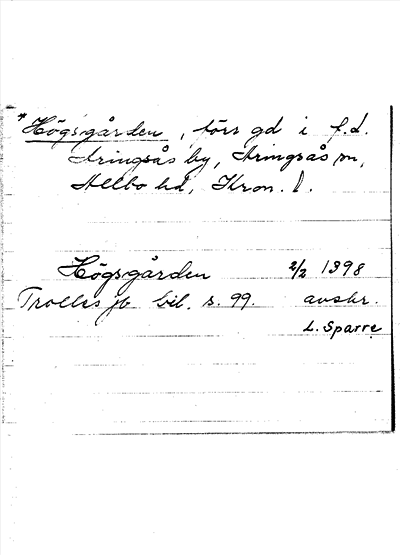 *Högsgården, förs gd i f.d.
Aringsås by, Aringsås sn,
Allbo hd, Kron. l.
Högsgården 2/2 1398
Trolles jb bil. s. 99. avskr.
L. Sparre